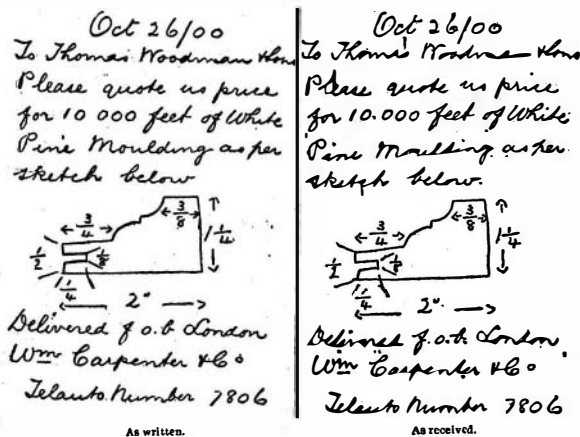 Oct 26/00
To Thomas Woodman & Sons
Please quote us price
for 10 000 feet of White
Pine Moulding as per
sketch below
3/4
3/8
1/2
1/8
1 1/4
1/4
2"
Delivered f.o.b. London
Wm Carpenter & Co
Telauto. Number 7806
As written.
Oct 26/00
To Thomas Woodman & Sons
Please quote us price
for 10.000 feet of White
Pine Moulding as per
sketch below.
3/4
3/8
1/2
1/8
1 1/4
1/4
2"
Delivered f.o.b. London
Wm Carpenter & Co
Telauto Number 7806
As received.